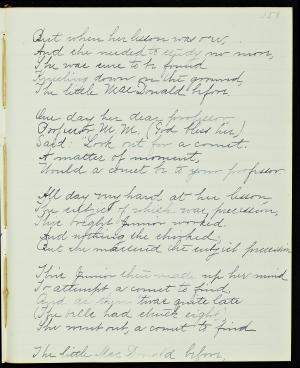 158
But when her lesson was o'er,
And she needed to study no more,
She was sure to be found
Kneeling down on the ground,
The little MacDonald before.
One day her dear professor,
Professor M. M. (God bless her)
Said: "Look out for a comet.
A matter of moment,
Would a comet be to your professor.
All day long hard at her lesson,
The subject of which was precession,
This bright Junior worked.
And nothing she shirked;
But she mastered the subject precession
This Junior then made up her mind
To attempt a comet to find,
And as then 'twas quite late
(The bells had struck eight)
She went out, a comet to find
The little MacDonald before.